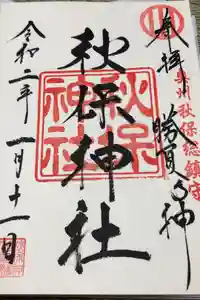 奉拝
奥州秋保総鎮守
勝負の神
秋保神社
秋保神社
令和二年一月十一日